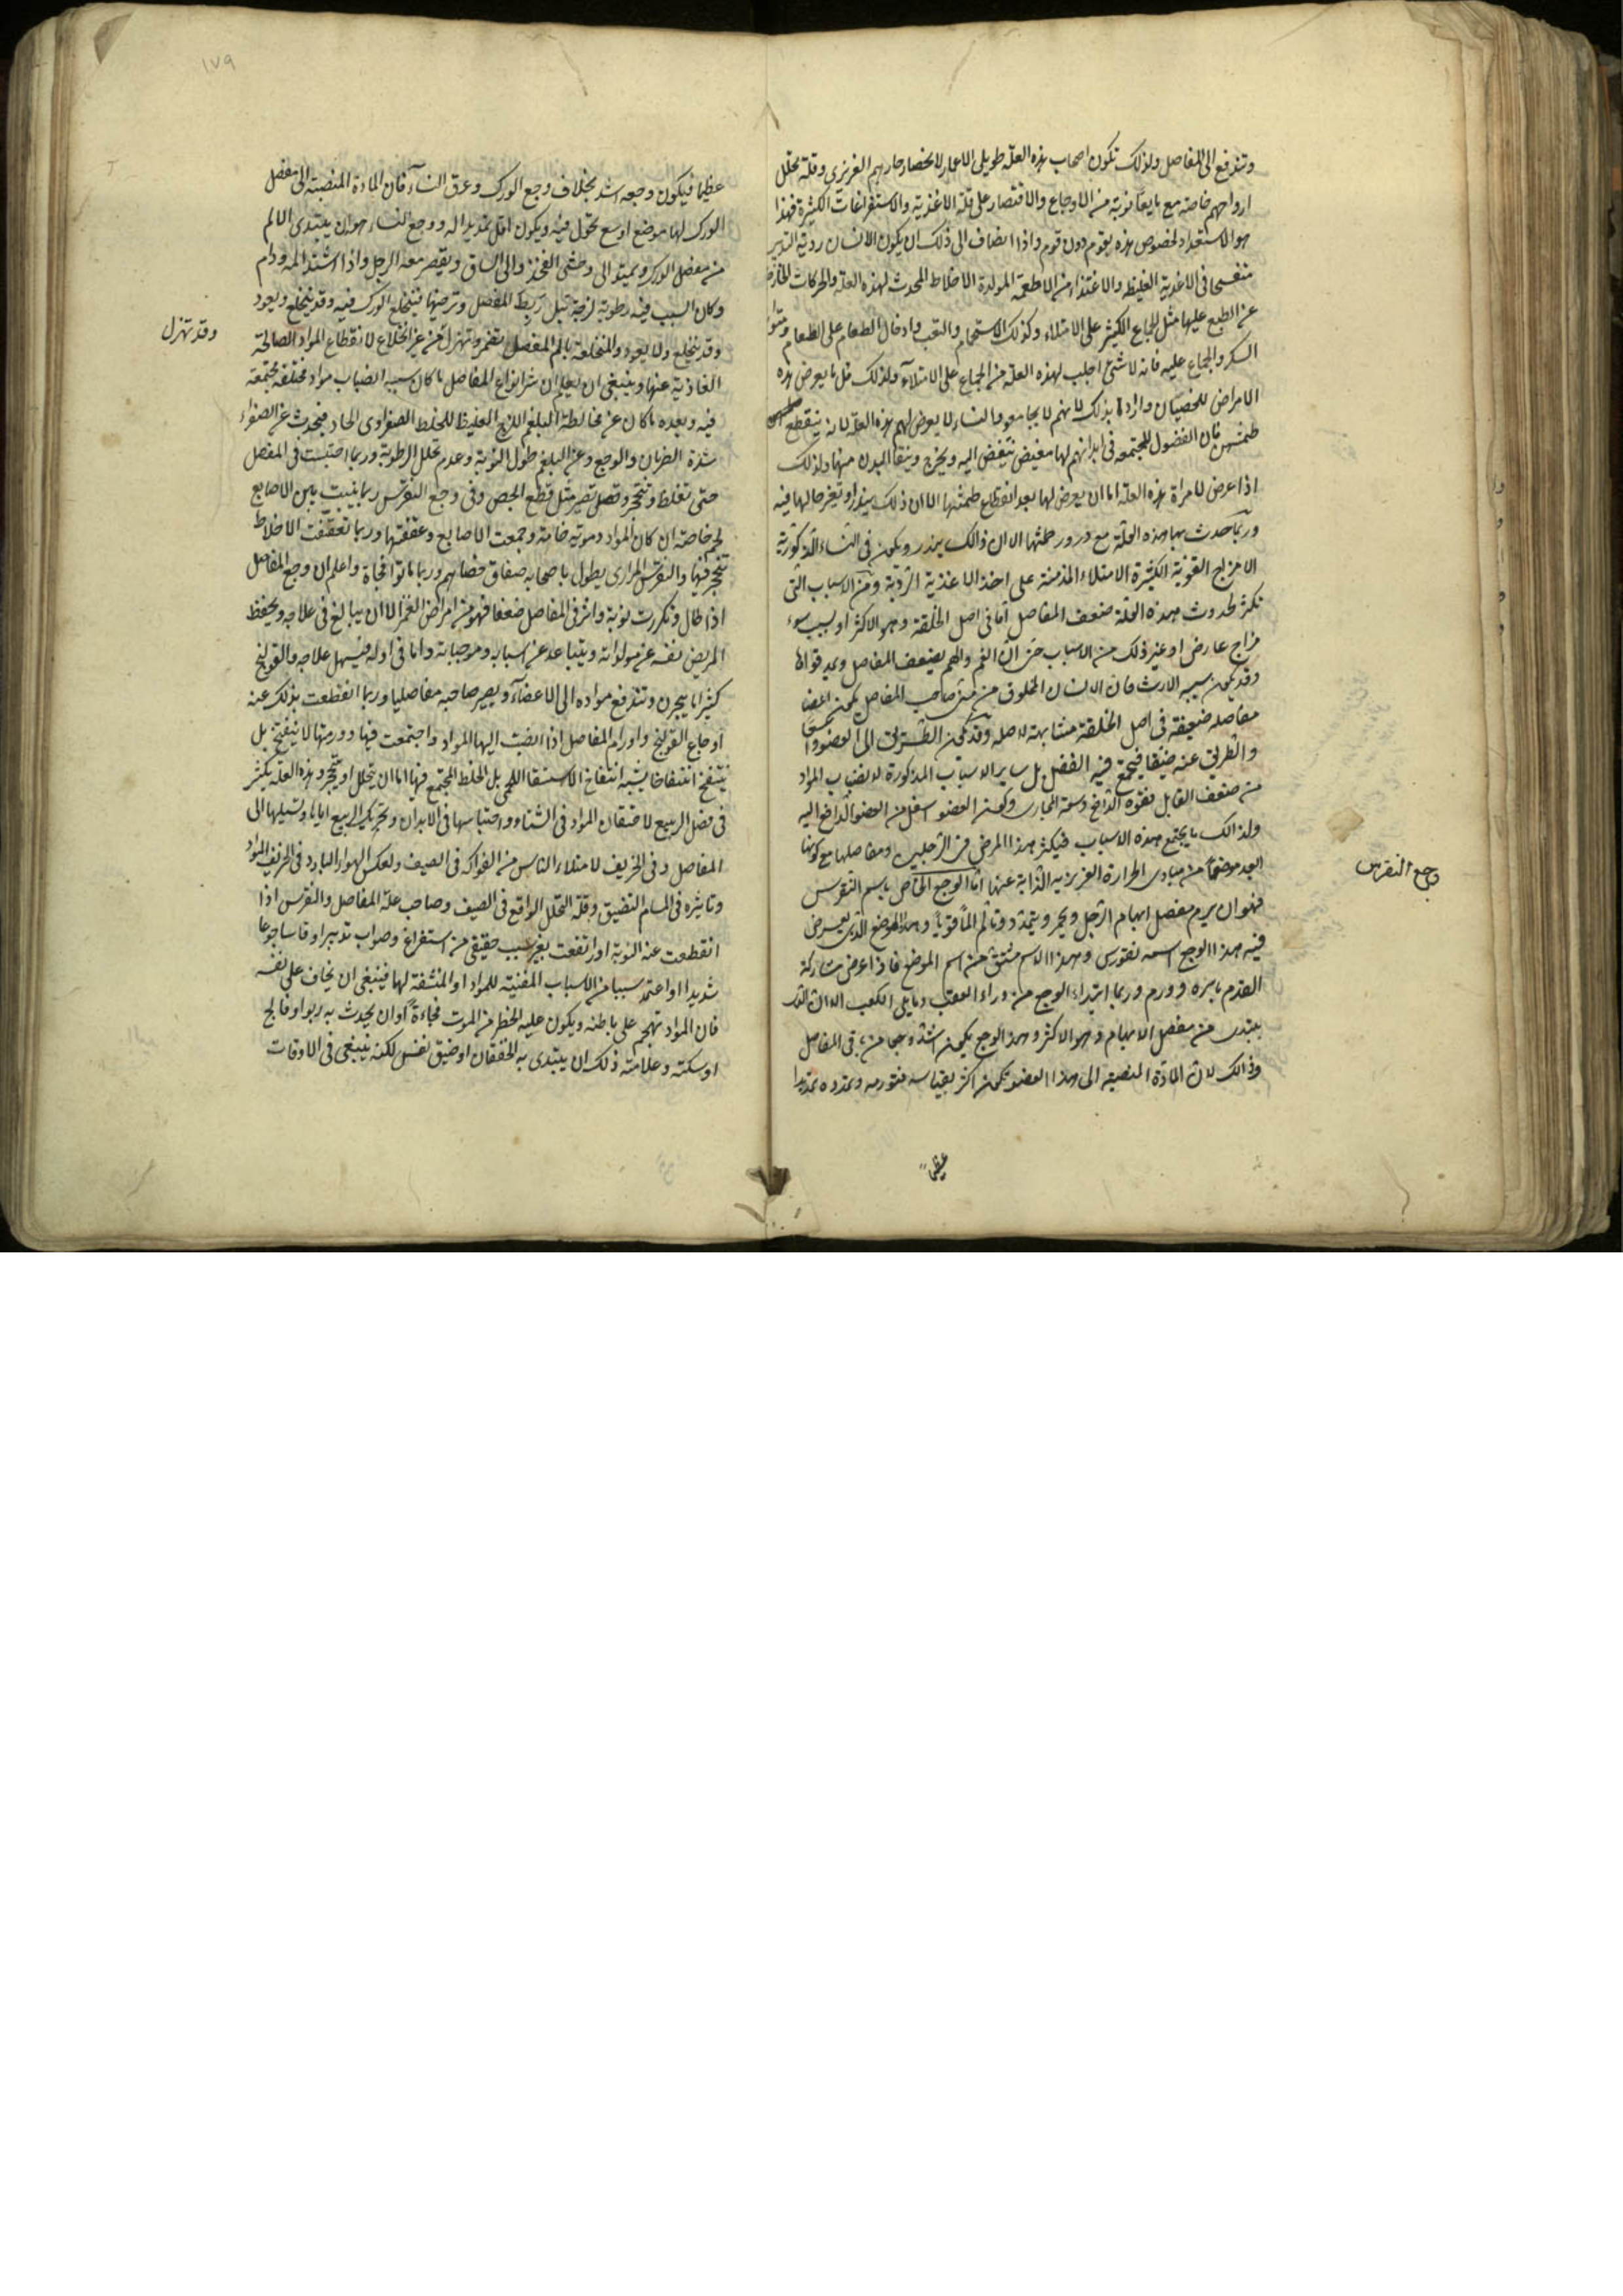 وتندفع الى المفاصل ولذلك تكون اصحاب هذه العلة طويلى الاعمار لانحصار حارهم الغريزى وقلة تحلل
ارواحهم خاصة مع ما يعانونه من الاوجاع والاقتصار على قلة الاغذية والاستفراغات الكثيرة فهذا
هو الاستعداد لخصوص هذه بقوم دون قوم واذا انضاف الى ذلك ان يكون الانسان ردئ التدبير
فى الاغذية الغليظه والاغتذاء من الاطعمة المولدة الاخلاط المحدث لهذه العلة والحركات الخارجة
عن الطبع عليها مثل الجماع الكثير على الامتلاء وكذلك الاستحمام والتعب وادخال الطعام على الطعام
السكر والجماع عليه فانه لا شئ اجلب لهذه العلة من الجماع على الامتلاء ولذلك قل ما يعرض هذه
الامراض للخصيان بذلك لانهم لا يجامعو والنساء لا يعرض لهم هذه العلة لانه ينقطع
طمثهن فان الفضول المجتمعه فى ابدانهم لها مغيض يتغيض اليه ويخرج وينقا البدن منها ولذلك
اذا عرض لامراة هذه العلة اما ان يعرض لها بعد انقطاع طمثها الا ان ذلك
وربما حدث بها هذه العلة مع درور طمثها الا ان ذالك يندر ويكون فى النساء الذكورية
الامزاج القوية الكثيرة الامتلاء المدمنة على اخذ الاغذية الردية ومن الاسباب التى
تكثر لحدوث هذه العلة ضعف المفاصل اما فى اصل الخلقة وهو الاكثر او بسبب سوء
مزاج عارض او غير ذلك من الاسباب حتى ان الغم والهم يضعف المفاصل
وقد يكون سببه الارث فان الانسان المخلوق من منى صاحب المفاصل يكون
مفاصله ضعيفة فى اصل الخلقة مشابهة لاصله وقد يكون الطريق الى العضو
والطريق عنه ضيقا فيجمع فيه الفضل بل ساير الاسباب المذكورة لانصباب المواد
من ضعف القابل بقوة الدافع وسعة المجارى وكون العضو اسفل من العضو الدافع اليه
ولذالك ما يجتمع هذه الاسباب فيكثر هذا المرض فى الرجلين ومفاصلها مع كونها
ابعد موضعا من مبادى الحرارة الغريزيه الذابة عنها اما الوجع الخاص باسم النقرس
فهو ان يرم مفصل ابهام الرجل ويحمر ويتمدد وتالم الما قويا وهذا الموضع الذى يعرض
فيه هذا الوجع اسمه نقورس وهذا الاسم مشتق من اسم الموضع فاذا عرض مشاركة
القدم باسره وورم وربما ابتداء الوجع من وراء العقب وما يلى الكعب
يبتدى من مفصل الابهام وهو الاكثر وهذا الوجع يكون اشد وجعا من باقى المفاصل
وذالك لان المادة المنصبه الى هذا العضو تكون اكثر بقياسه فتورمه وتمدده تمديدا
وجع النقرس
عظيما
١٧٩
عظيما فيكون وجعه اشد بخلاف وجع الورك وعرق النساء فان المادة المنصبة الى مفصل
الورك لها موضع اوسع تحول فيه ويكون اقل تمديدا له ووجع النساء هو ان يبتدى الالم
من مفصل الورك ويمتد الى وحشى الفخذ والى الساق ويقصر معه الرجل واذا اشتد المه ودام
وكان السبب فيه رطوبة لزجة تبل ربط المفصل وترخيها فينخلع الورك فيه وقد ينخلع ويعود
وقد ينخلع ولا يعود والمنخلعة يالم المفصل تضمر وتهزل من غير انخلاع لانقطاع المواد الصالحة
وقد تهزل
الغاذية عنها وينبغى ان يعلم ان شر انواع المفاصل ما كان سببه انصباب مواد مختلفة مجتمعة
فيه وبعده ما كان عن مخالطة البلغم اللزج الغليظ للخلط الصفراوى الحاد فيحدث عن الصفراء
شدة الضربان والوجع وعن البلغم طول النوبة وعدم تحلل الرطوبة وربما احتبست فى المفصل
حتى تغلظ وتتحجر تصير مثل قطع الجص وفى وجع النقرس ربما ينبت بين الاصابع
لحم خاصة ان كان المواد دموية خامة وجمعت الاصابع وعقفتها وربما تعفنت الاخلاط
فيها والنقرس المرارى يطول باصحابه وربما ماتوا فجاة واعلم ان وجع المفاصل
اذا طال وتكررت نوبة واثر فى المفاصل ضعفا فهو من امراض العمر الا ان يبالغ فى علاجه ويحفظ
المريض نفسه عن مولداته ويتباعد عن اسبابه وموجباته واما فى اوله فيسهل علاجه والقولنج
كثيرا ما يبحرن وتندفع مواده الى الاعضاء ويصير صاحبه مفاصليا وربما انقطعت بذلك عنه
اوجاع القولنج واورام المفاصل اذا انصب اليها المواد واجتمعت فيها وورمتها لا ينفتح بل
ينتفخ انتفاخا يشبه انتفاخ الاستسقا اللحمى بل الخلط المجتمع فيها اما ان يتحلل او يتحجر وهذه العلة يكثر
فى فصل الربيع لاحتقان المواد فى الشتاء واحتباسها فى الابدان وتحريك الربيع اياها وتسيلها الى
المفاصل وفى الخريف لامتلاء الناس من الفواكه فى الصيف ولعكس الهواء البارد فى الخريف المواد
وتاثيره فى المسام التضيق وقلة التحلل الواقع فى الصيف وصاحب علة المفاصل والنقرس اذا
انقطعت عنه النوبة او ارتفعت بغير سبب حقيقى من استفراغ وصواب تدبير او قاسا جوعا
شديدا او اعتمد سببا من الاسباب المفنية للمواد او المنشفة لها فينبغى ان يخاف على نفسه
فان المواد تهجم على باطنه ويكون عليه الخطر من الموت فجاءة او ان يحدث به ربوا او فالج
او سكتة وعلامة ذلك ان يبتدى به الخفقان او ضيق نفس لكنه ينبغى فى الاوقات